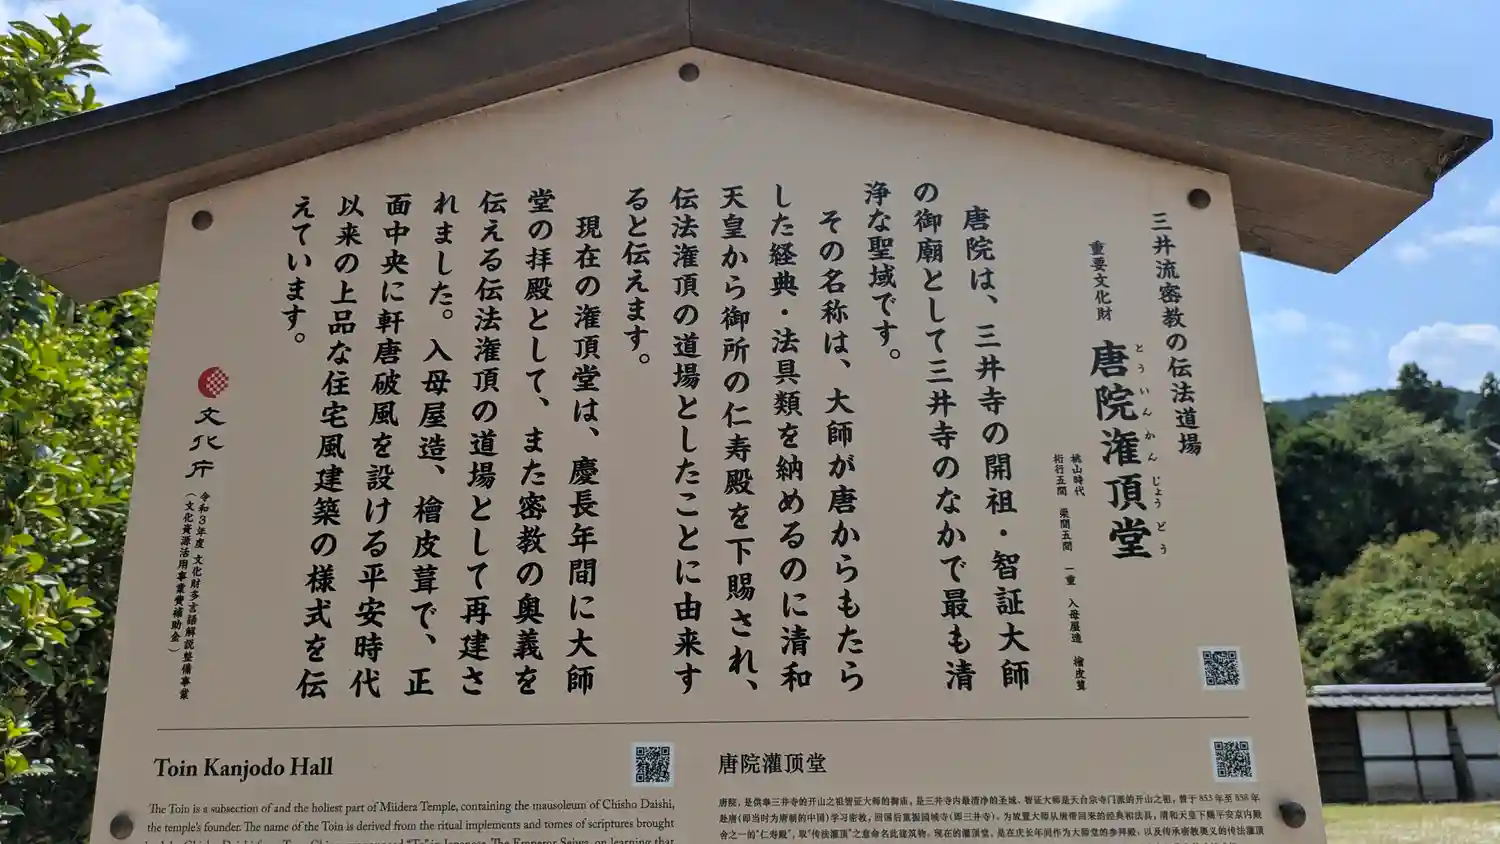 三井流密教の伝法道場
重要文化財 唐院潅頂堂
とういんかんじょうどう
桃山時代
桁行五間 梁間五間 一重 入母屋造 檜皮葺
唐院は、三井寺の開祖・智証大師
の御廟として三井寺のなかで最も清
浄な聖域です。
その名称は、大師が唐からもたら
した経典・法具類を納めるのに清和
天皇から御所の仁寿殿を下賜され、
伝法潅頂の道場としたことに由来す
ると伝えます。
現在の潅頂堂は、慶長年間に大師
堂の拝殿として、また密教の奥義を
伝える伝法潅頂の道場として再建さ
れました。入母屋造、檜皮葺で、正
面中央に軒唐破風を設ける平安時代
以来の上品な住宅風建築の様式を伝
えています。
文化庁
令和3年度 文化財多言語解説整備事業
（文化資源活用事業費補助金）
Toin Kanjodo Hall
The Toin is a subsection of and the holiest part of Miidera Temple, containing the mausoleum of Chisho Daishi,
the temple's founder. The name of the Toin is derived from the ritual implements and tomes of scriptures brought
唐院灌顶堂
唐院，是供奉三井寺的开山之祖智证大师的御庙，是三井寺内最清净的圣域。智证大师是天台宗寺门派的开山之祖，曾于 853 年至 858 年
赴唐（即当时为唐朝的中国）学习密教，回国后重振园城寺（即三井寺）。为放置大师从唐带回来的经典和法具，清和天皇下赐平安京内殿
舍之一的“仁寿殿”，取“传法灌顶”之意命名此建筑物。现在的灌顶堂，是在庆长年间作为大师堂的参拜殿、以及传承密教奥义的传法灌顶